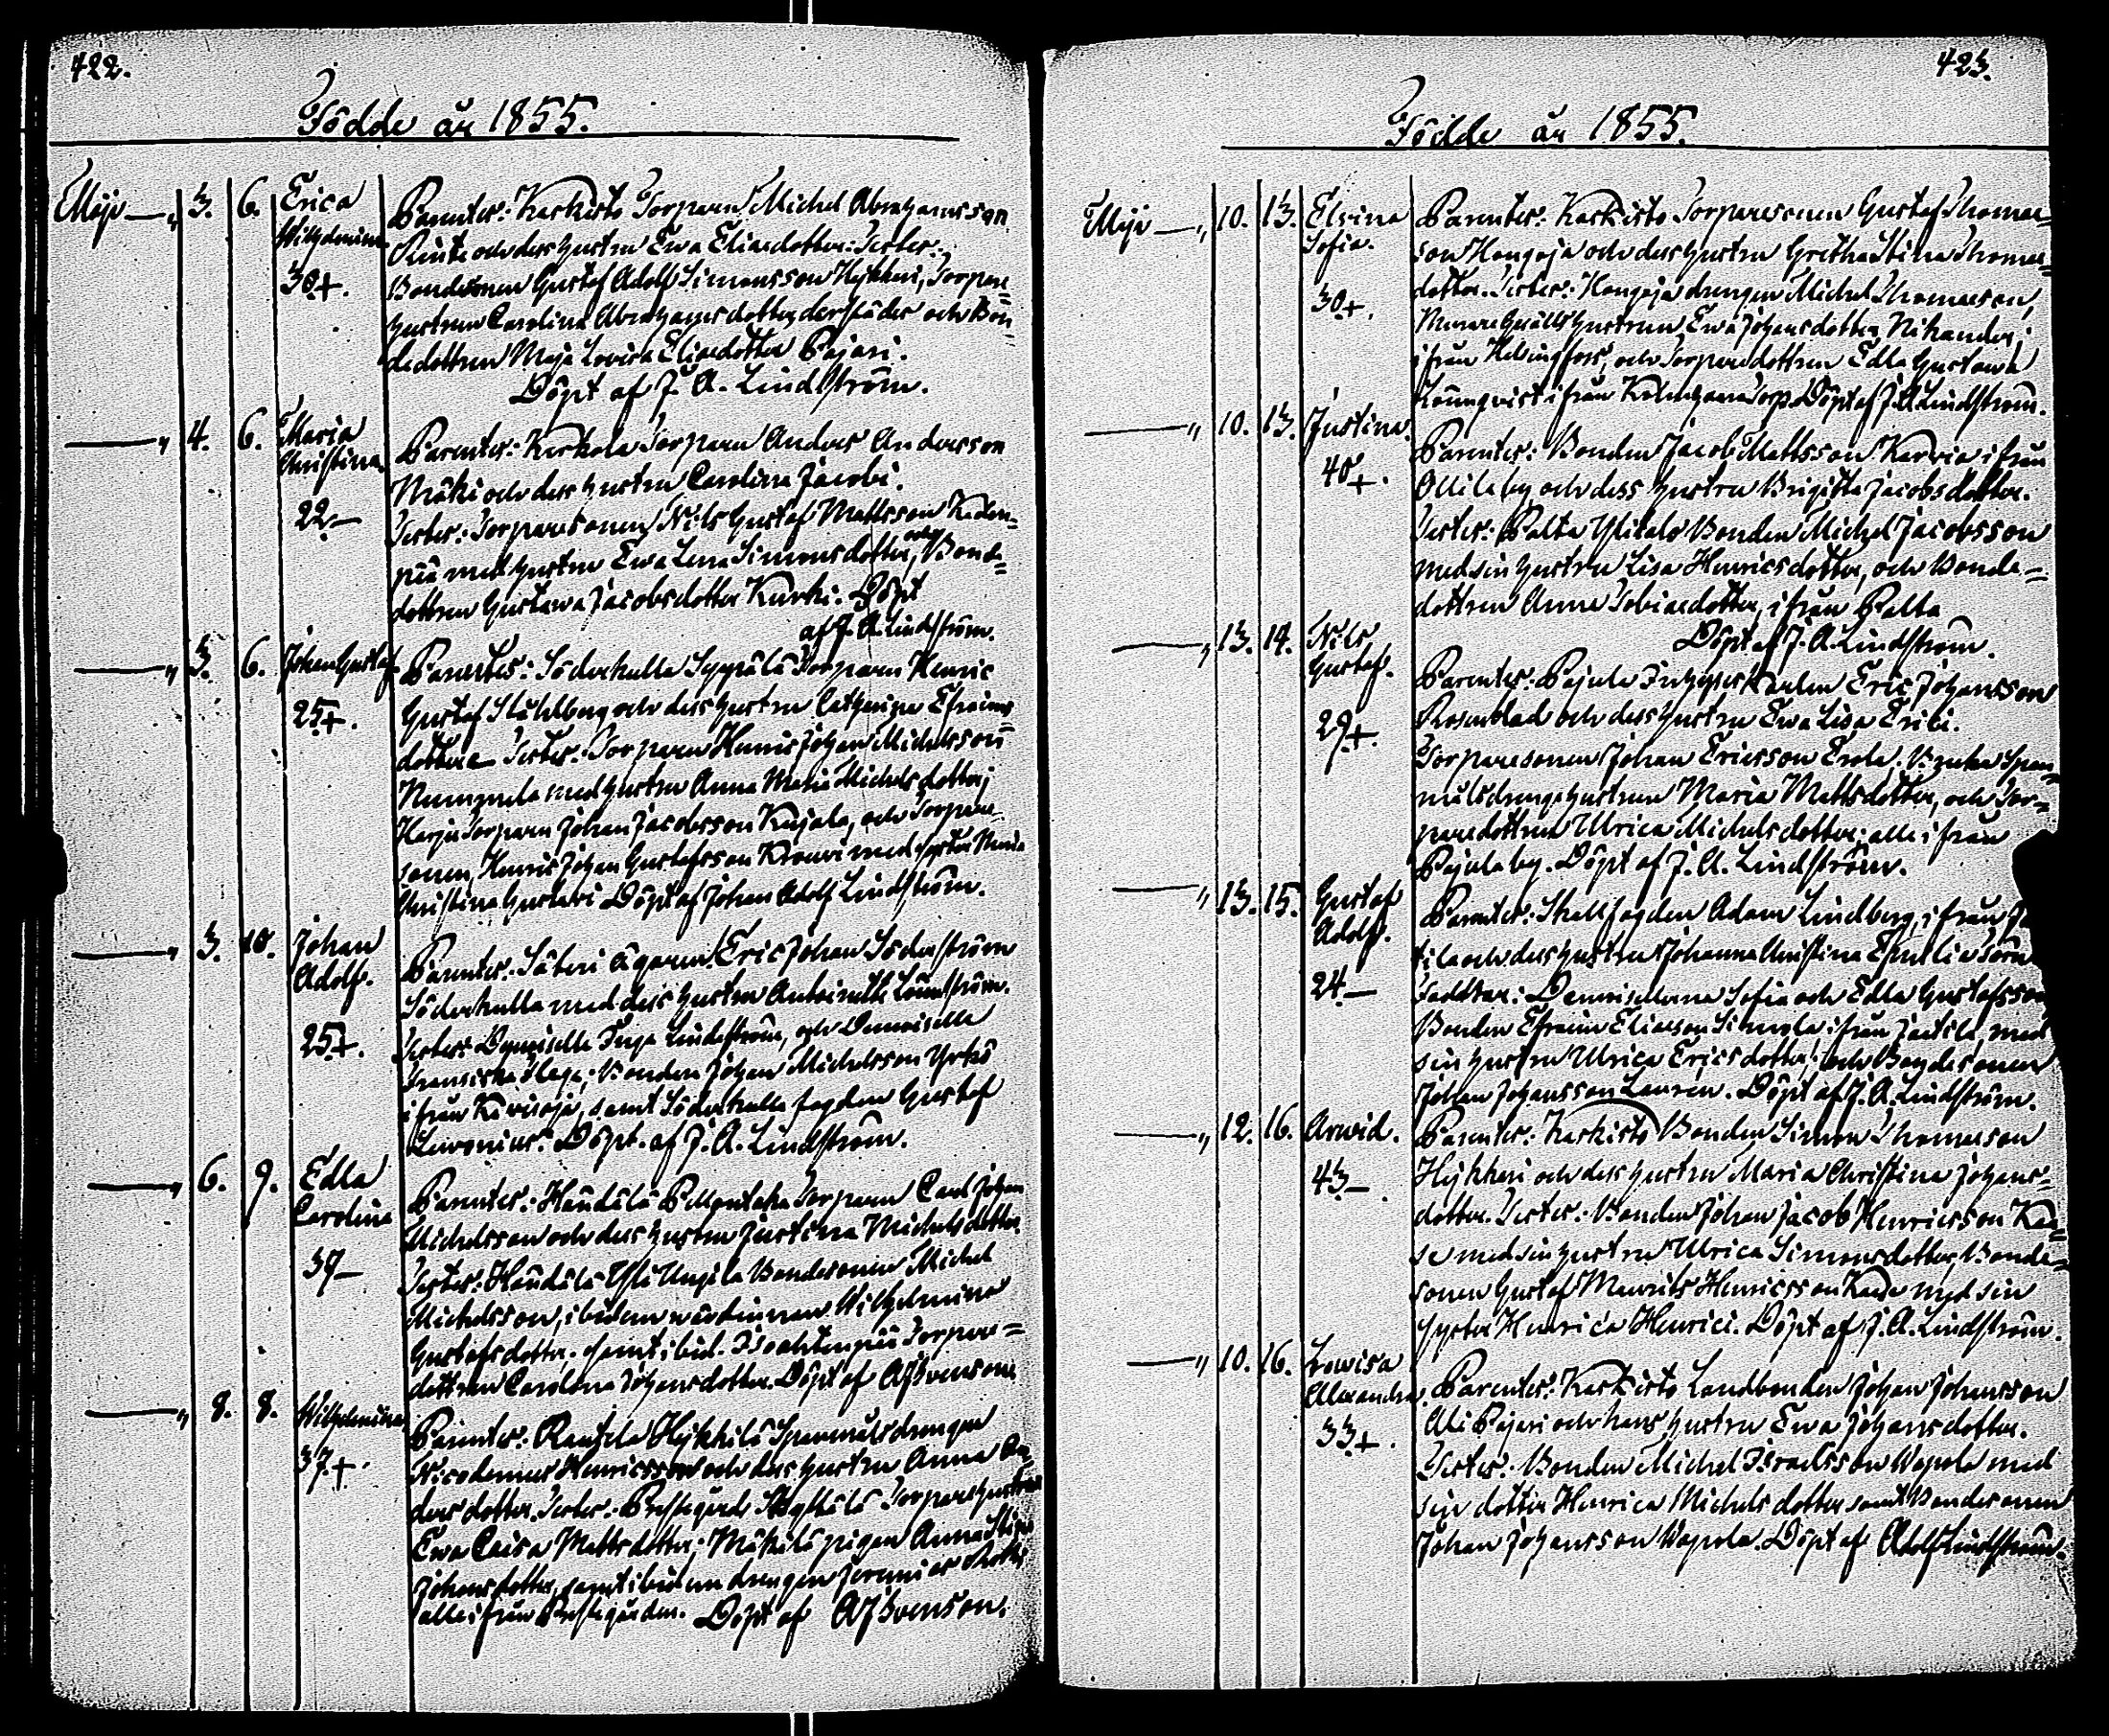 422.
Födde år 1855.
Maji 3. 6. Erica Wilhelmina 30+.
Parenter: Karkisto Torparen Michel Abrahamsson
och dess hustru Ewa Eliaedotter. Testes:
Bondesonen Gustaf Adolf Simonsson Hejkkeri, Torpare=
hustrun Carolina Abrahamsdotter derstädes och Bon=
dedottren Maja Lovisa Eliaedotter Pajari.
Döpt af J. A. Lindström.
" 4. 6. Maria Christina. 22—
Parenter: Kerkola Torparen Anders Andersson
Mäki och dess hustru Carolina Jacobi.
Testes: Torparesonen Nils Gustaf Mattsson
med hustru Ewa Lena Simonsdotter, och Bonde=
dottren Gustawa Jacobsdotter Kurki. Döpt
af J. A. Lindström.
" 3. 6. Johan Gustaf 25+.
Parentes: Söderkulla Torparen Henric
Gustaf Ståhlberg och dess hustru Catharina Efraims
dotter. Testes: Torparen Henric Johan Michelsson
Nummela med hustru Anna Maria Michelsdotter;
Harju Torparen Johan Jacobsson Kujala, och Torpare=
sonen Henric Johan Gustafsson med syster Maria
Christina Gustavi. Döpt af Johan Adolf Lindström.
" 3. 10. Johan Adolf. 25+.
Parenter: Säteri ägaren Eric Johan Söderström
Söderkulla med dess hustru Antoinette Lönnström.
Testes: Demoiselle Lindström, och Demoiselle
Fransiska; Bonden Johan Michelsson Yrkö
ifrån, samt Söderkulla fogden Gustaf
Lewonius. Döpt af J. A. Lindström.
" 6. 9. Edla Carolina 39—
Parenter: Torparen Carl Johan
Michelsson och dess hustru Justina Michelsdotter.
Testes: Yli Ungila Bondesonen Michel
Michelsson, ibidem värdinnan Wilhelmina
Gustafsdotter, samt ibid. Torpare=
dottren Carolina Johansdotter. Döpt af AJSvenson.
" 8. 8. Wilhelmina 37+.
Parenter: Rantala Hejkkilä Spanmålsdrengen
Nicodemus Henricsson och dess hustru Anna An=
dersdotter. Testes: Prestegårds Torparehustrun
Ewa Caisa Mattsdotter; Mäkilä pigan Anna Stina
Johansdotter, samt ibidem drengen Jeremias
alle ifrån Prestegården. Döpt af AJSvenson.
423.
Födde år 1855.
Maji " 10. 13. Elvina Sofia. 30+.
Parenter: Karkisto Torparesonen Gustaf Thomas=
son Hongoja och dess hustru Gretha Stina Thomas=
dotter. Testes: Hongoja drengen Michel Thomasson,
hustrun Ewa Johansdotter Nikander;
ifrån Helsingfors, och Torparedottren Edla Gustawa
ifrån Torp. Döpt af J. A. Lindström.
" 10. 13. Justina. 40+.
Parenter: Bonden Jacob Mattsson Karvia ifrån
Ollila by och dess hustru Brigitta Jacobsdotter.
Testes: Palta Ylitalo Bonden Michel Jacobsson
med sin hustru Lisa Henricsdotter, och Bonde=
dottren Anna Tobiaedotter, ifrån Palta
Döpt af J. A. Lindström.
" 13. 14. Nils Gustaf. 29+.
Parenter: Pajula Inhyseskarlen Eric Johansson
Rosenblad och dess hustru Ewa Lisa Erici.
Torparesonen Johan Ericsson Erola. Span=
målsdrengehustrun Maria Mattsdotter, och Tor=
paredottren Ulrica Michelsdotter; alle ifrån
Pajula by. Döpt af J. A. Lindström.
" 13. 15. Gustaf Adolf. 24—
Parenter: Stallfogden Adam Lindberg, ifrån
och dess hustru Johanna Christina
Faddrar: Demoisellerna Sofia och Edla Gustafsson
Bonden Efraim Eliaeson Simola ifrån Jartila, med
sin hustru Ulrica Ericsdotter; och Bondesonen
Johan Johansson Lauren. Döpt af J. A. Lindström.
" 12. 16. Arwid. 43—.
Parenter: Karkisto Bonden Simon Thomasson
Hejkkeri och dess hustru Maria Christina Johans=
dotter. Testes: Bonden Johan Jacob Henricsson Kaa=
se med sin hustru Ulrica Simonsdotter, Bonde=
sonen Gustaf Maurits Henricsson Kaase med sin
syster Henrica Henrici. Döpt af J. A. Lindström.
" 10. 16. Lowisa Alexandra. 33+.
Parenter: Karkisto Landbonden Johan Johansson
Ali Pajari och hans hustru Ewa Johansdotter.
Testes: Bonden Michel Israelsson Wapola med
sin dotter Henrica Michelsdotter samt Bondesonen
Johan Johansson Wapola. Döpt af Adolf Lindström.